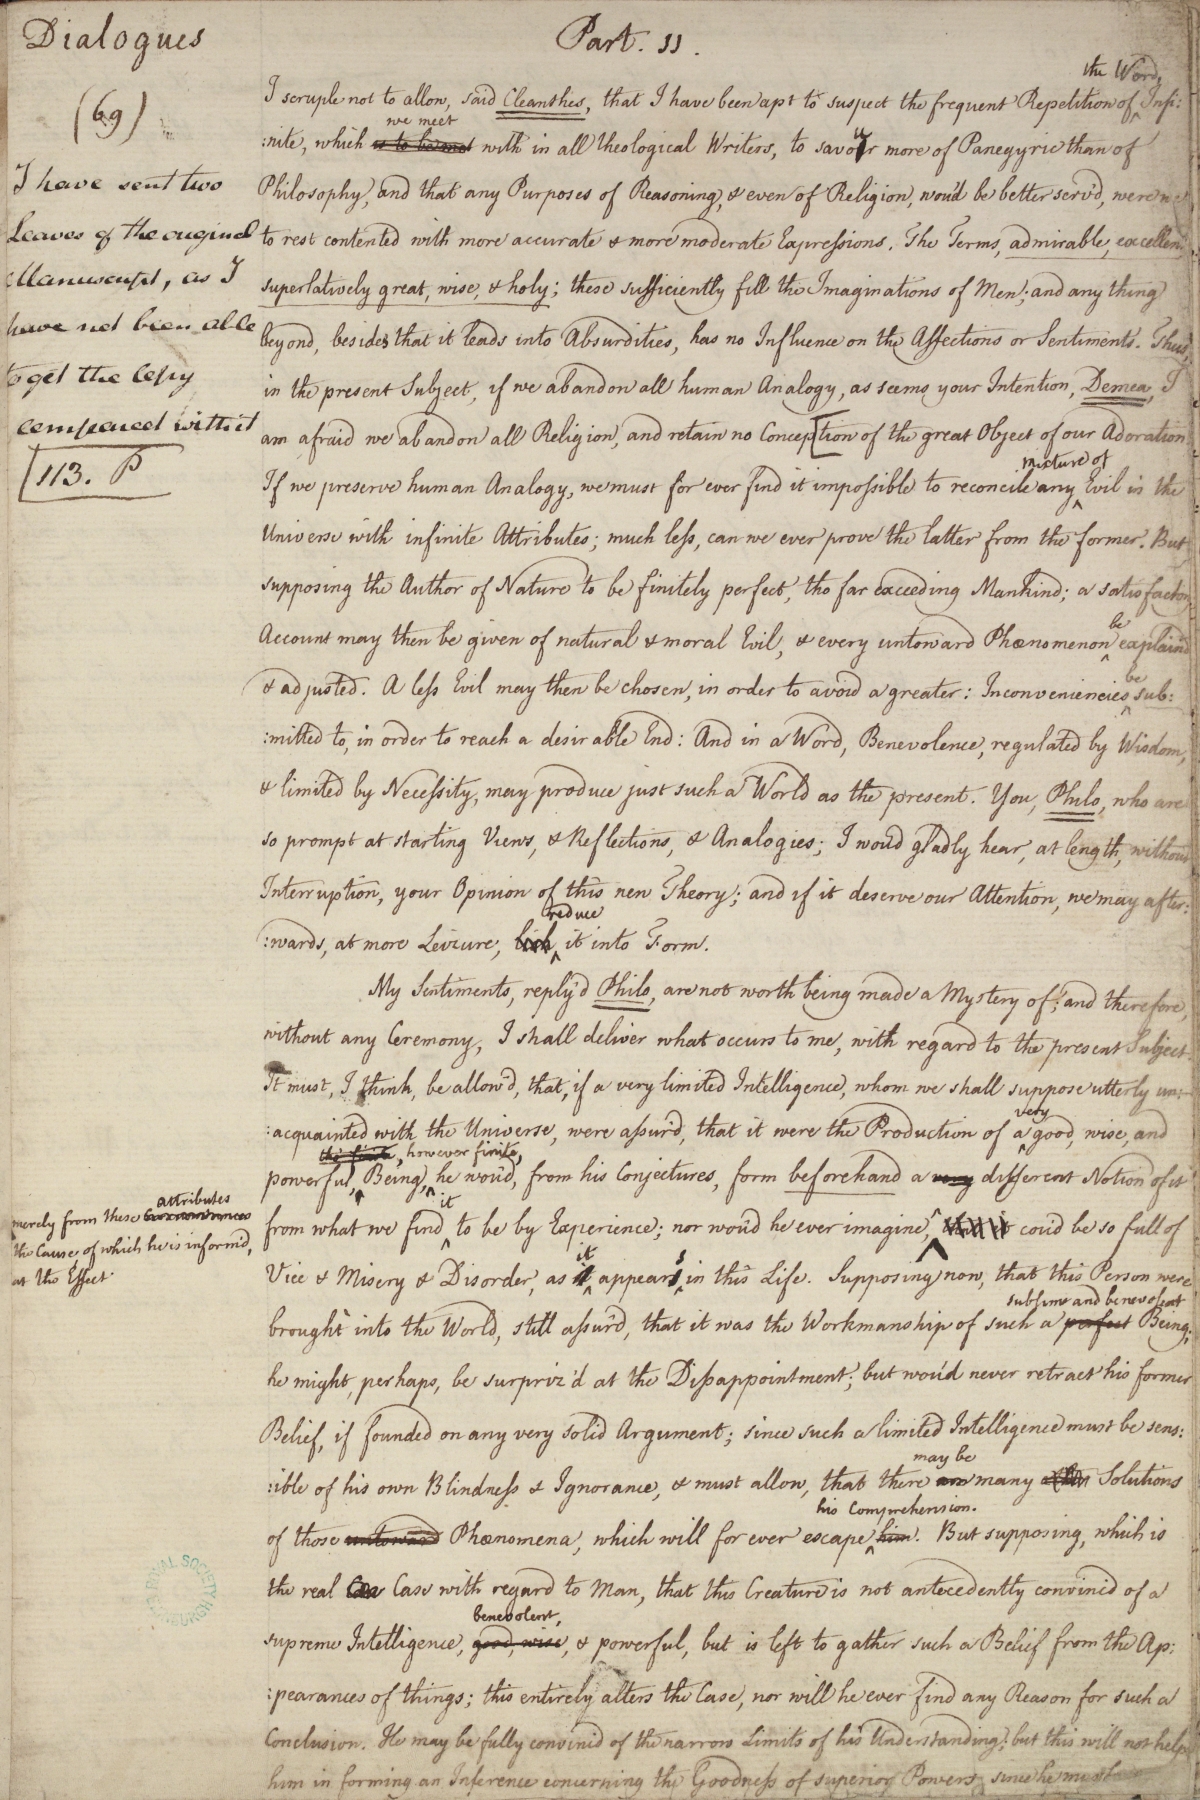 Dialogues
(69)
I have sent two
Leaves of the original
Manuscript, as I
have not been able
to get the Copy
compared with it
113. P
Part. 11.
the Word,
I scruple not to allow, said Cleanthes, that I have been apt to suspect the frequent Repetition of Infi:
we meet
:nite, which is to be met with in all theological Writers, to savour more of Panegyric than of
Philosophy, and that any Purposes of Reasoning, & even of Religion, wou'd be better serv'd, were we
to rest contented with more accurate & more moderate Expressions. The Terms, admirable, excellent
superlatively great, wise, & holy; these sufficiently fill the Imaginations of Men; and any thing
beyond, besides that it leads into Absurdities, has no Influence on the Affections or Sentiments. Thus,
in the present Subject, if we abandon all human Analogy, as seems your Intention, Demea, I
am afraid we abandon all Religion, and retain no Concep[tion of the great Object of our Adoration
mixture of
If we preserve human Analogy, we must for ever find it impossible to reconcile any Evil in the
Universe with infinite Attributes; much less, can we ever prove the latter from the former. But
supposing the Author of Nature to be finitely perfect, tho far exceeding Mankind; a satisfactory
be
Account may then be given of natural & moral Evil, & every untoward Phænomenon explain'd
be
& adjusted. A less Evil may then be chosen, in order to avoid a greater: Inconveniencies sub:
:mitted to, in order to reach a desirable End: And in a Word, Benevolence, regulated by Wisdom,
& limited by Necessity, may produce just such a World as the present. You, Philo, who are
so prompt at starting Views, & Reflections, & Analogies; I wou'd gladly hear, at length, without
Interruption, your Opinion of this new Theory; and if it deserve our Attention, we may after:
reduce
:wards, at more Leizure, it into Form.
My Sentiments, reply'd Philo, are not worth being made a Mystery of; and therefore,
without any Ceremony, I shall deliver what occurs to me, with regard to the present Subject.
It must, I think, be allow'd, that, if a very limited Intelligence, whom we shall suppose utterly un:
very
:acquainted with the Universe, were assur'd, that it were the Production of a good, wise, and
, however finite,
powerful Being, he wou'd, from his Conjectures, form beforehand a very different Notion of it
it
from what we find to be by Experience; nor wou'd he ever imagine, it cou'd be so full of
attributes
merely from these Circumstances
the Cause of which he is inform'd,
at the Effect
it s
Vice & Misery & Disorder, as it appears in this Life. Supposing now, that this Person were
sublime and benevolent
brought into the World, still assur'd, that it was the Workmanship of such a perfect Being;
he might, perhaps, be surpriz'd at the Disappointment; but wou'd never retract his former
Belief, if founded on any very solid Argument; since such a limited Intelligence must be sens:
may be
:ible of his own Blindness & Ignorance, & must allow, that there are many Solutions
his Comprehension.
of those untoward Phænomena, which will for ever escape him. But supposing, which is
the real Cas Case with regard to Man, that this Creature is not antecedently convinc'd of a
benevolent,
supreme Intelligence, good, wise, & powerful, but is left to gather such a Belief from the Ap:
:pearances of things; this entirely alters the Case, nor will he ever find any Reason for such a
Conclusion. He may be fully convinc'd of the narrow Limits of his Understanding; but this will not help
him in forming an Inference concerning the Goodness of superior Powers, since he must
ROYAL SOCIETY EDINBURGH